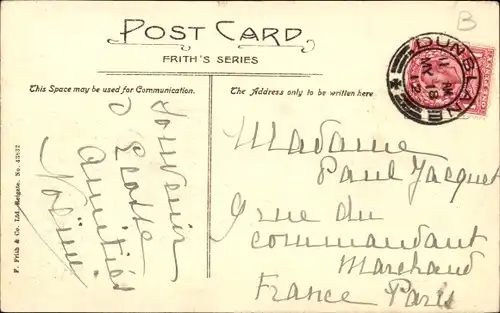 POST CARD
FRITH'S SERIES
This Space may be used for Communication.
The Address only to be written here
B
DUNBLANE
MY 18
12
Souvenir
d'Ecosse
Amitiés
F. Frith & Co. Ltd. Reigate. No.
Madame
Paul Jacquet
9 rue du
commandant
Marchand
France Paris